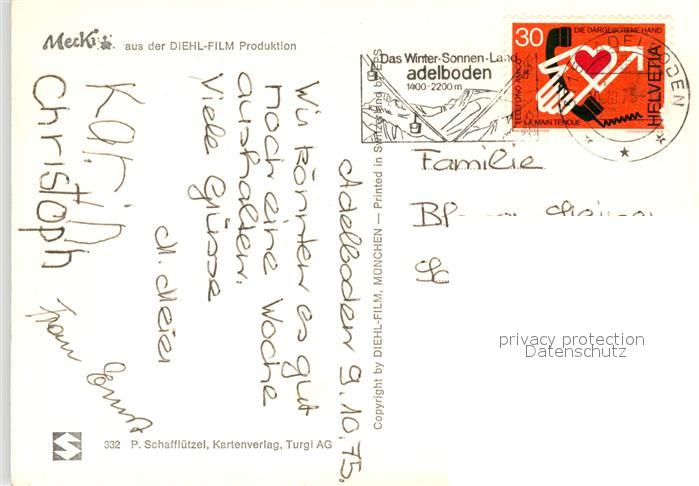 Mecki aus der DIEHL-FILM Produktion
Adelboden 9.10.75.
Wir könnten es gut
noch eine Woche
aushalten.
Viele Grüsse
M. Meier
Karin
Christoph
332 P. Schafflützel, Kartenverlag, Turgi AG
Copyright by DIEHL-FILM, MÜNCHEN — Printed in Switzerland by EPS
Das Winter-Sonnen-Land
adelboden
1400-2200 m
30
DIE DARGEBOTENE HAND
TELEFONO AMICO
LA MAIN TENDUE
HELVETIA
ADELBODEN
Familie
privacy protection
Datenschutz